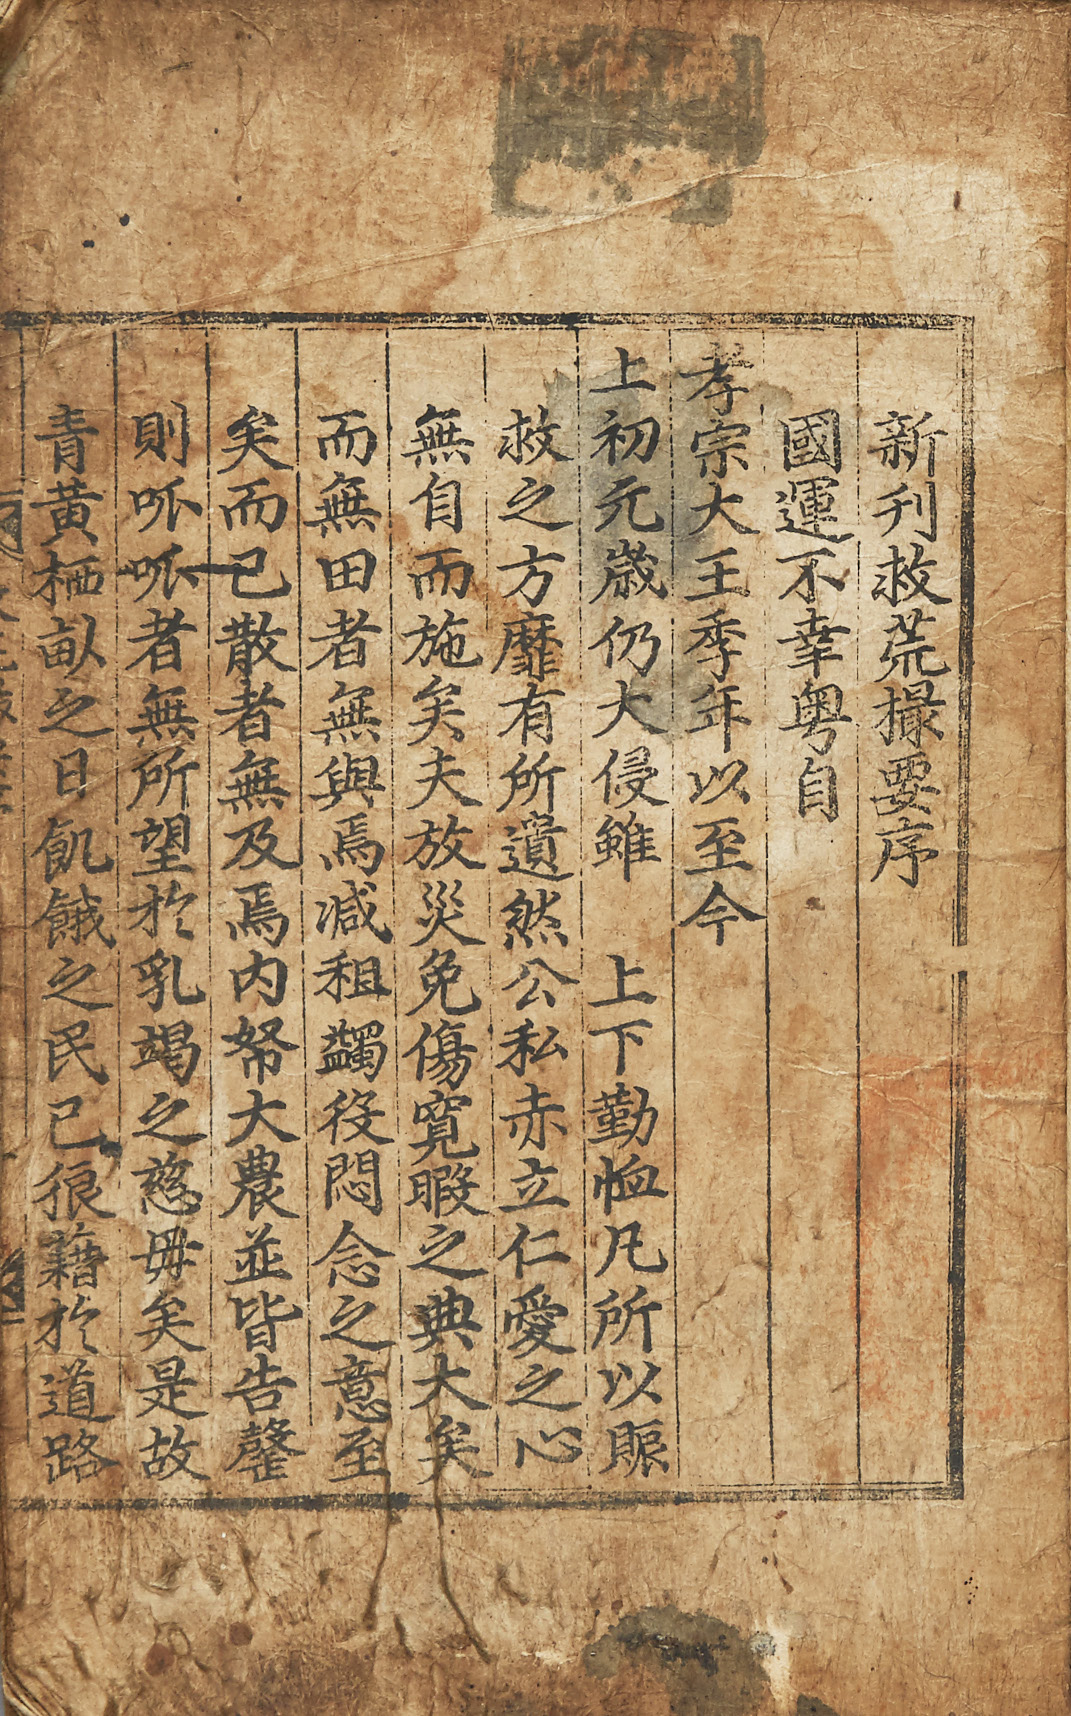 新刊救荒撮要序
國運不幸粤自
孝宗大王季年以至今
上初元歲仍大侵雖　上下勤恤凡所以賑
救之方靡有所遺然公私赤立仁愛之心
無自而施矣夫放災免傷寬暇之典大矣
而無田者無與焉减租蠲役悶念之意至
矣而已散者無及焉内帑大農並皆告罄
則呱呱者無所望於乳竭之慈毋矣是故
青黄栖畝之日飢餓之民已狼藉於道路